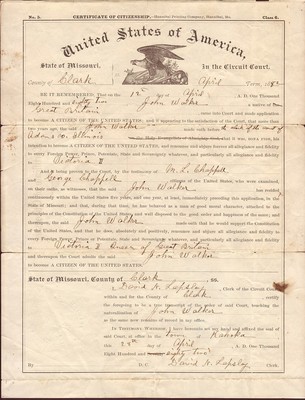 No. 5. CERTIFICATE OF CITIZENSHIP. Class 6.
United States of America,
State of Missouri,
In the Circuit Court.
County of Clark
April Term, 1882
BE IT REMEMBERED, That on the 12th day of April A. D. One Thousand
Eight Hundred and eighty two John Walker a native of
Great Britain
to become A CITIZEN OF THE UNITED STATES; and it appearing to the satisfaction of the Court, that more than
two years ago, the said John Walker made oath before the clerk of the court of
Adams Co. Illinois
intention to become A CITIZEN OF THE UNITED STATES, and to renounce and abjure forever all allegiance and fidelity
to every Foreign Power, Prince, Potentate, State and Sovereignty whatever, and particularly all allegiance and fidelity to
Victoria
And it being proved to the Court, by the testimony of M. L. Chappell
and George Chappell citizens of the United States, who were examined,
on their oaths, as witnesses, that the said John Walker has resided
continuously within the United States five years, and one year, at least, immediately preceding this application, in the
State of Missouri; and that, during that time, he has behaved as a man of good moral character, attached to the
principles of the Constitution of the United States, and well disposed to the good order and happiness of the same; and
thereupon, the said John Walker made oath that he would support the Constitution
of the United States, and that he does, absolutely and positively, renounce and abjure all allegiance and fidelity to
every Foreign Power, Prince, Potentate, State and Sovereignty whatever, and particularly all allegiance and fidelity to
Victoria Queen of Great Britain
and thereupon the Court admits the said John Walker
to become A CITIZEN OF THE UNITED STATES.
State of Missouri, County of Clark ss.
I, David N. Lapsley, Clerk of the Circuit Court
within and for the County of Clark certify
the foregoing to be a true transcript of the order of said Court, touching the
naturalization of John Walker
as the same now remains of record in my office.
IN TESTIMONY WHEREOF, I have hereunto set my hand and affixed the seal of
said Court, at office in the town of Kahoka
this day of April A. D. One Thousand
Eight Hundred and eighty two
By D. C. David N. Lapsley Clerk.